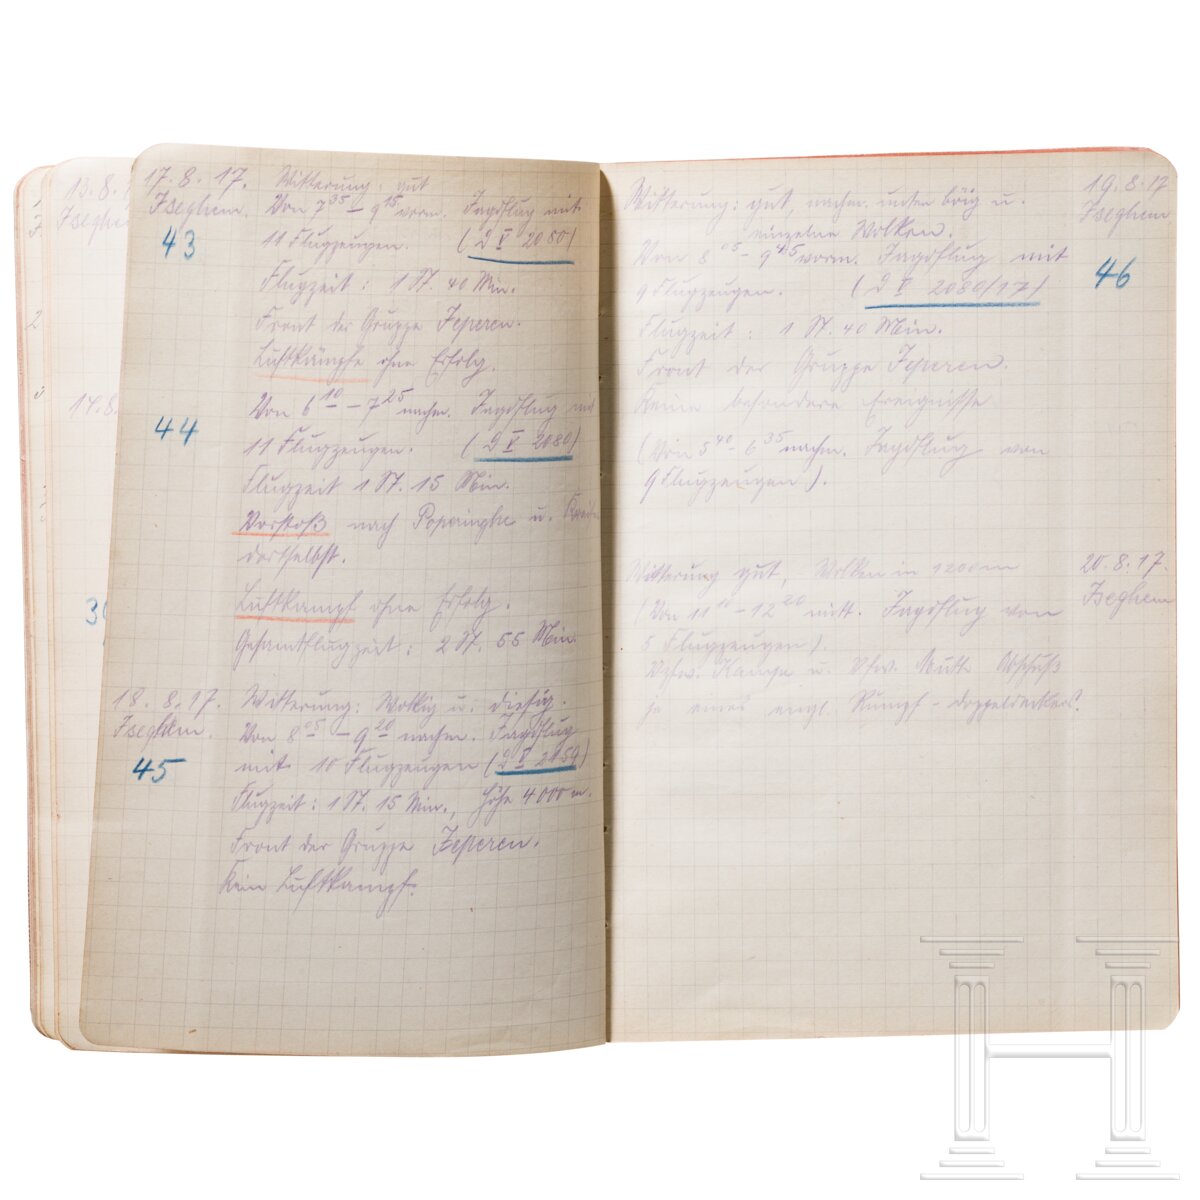 17. 8. 17. Witterung: gut
Iseghem. Von 7 35 – 9 15 vorm. Jagdflug mit
43 11 Flugzeugen. (D V 2080)
Flugzeit: 1 St. 40 Min.
Front der Gruppe Ieperen.
Luftkämpfe ohne Erfolg.
Von 6 10 – 7 25 nachm. Jagdflug mit
44 11 Flugzeugen. (D V 2080)
Flugzeit 1 St. 15 Min.
Vorstoß nach Poperinghe u.
dortselbst.
Luftkampf ohne Erfolg.
Gesamtflugzeit: 2 St. 55 Min.
18. 8. 17. Witterung: Wolkig u. diesig.
Iseghem. Von 8 05 – 9 20 nachm. Jagdflug
45 mit 10 Flugzeugen (D V 2159)
Flugzeit: 1 St. 15 Min., Höhe 4000 m.
Front der Gruppe Ieperen.
Kein Luftkampf.
13. 8.
Iseghe
17. 8.
Witterung: gut, nachm. unten böig u. 19. 8. 17
einzelne Wolken. Iseghem
Von 8 05 – 9 45 vorm. Jagdflug mit 46
9 Flugzeugen. (D V 2080/17)
Flugzeit: 1 St. 40 Min.
Front der Gruppe Ieperen.
Keine besondere Ereignisse
(Von 5 40 – 6 35 nachm. Jagdflug von
9 Flugzeugen).
Witterung gut, Wolken in 1200 m 20. 8. 17.
(Von 11 10 – 12 20 mitt. Jagdflug von Iseghem
5 Flugzeugen).
Vzfw. u. Vfw. Abschuß
je eines engl. Rumpf-Doppeldeckers.